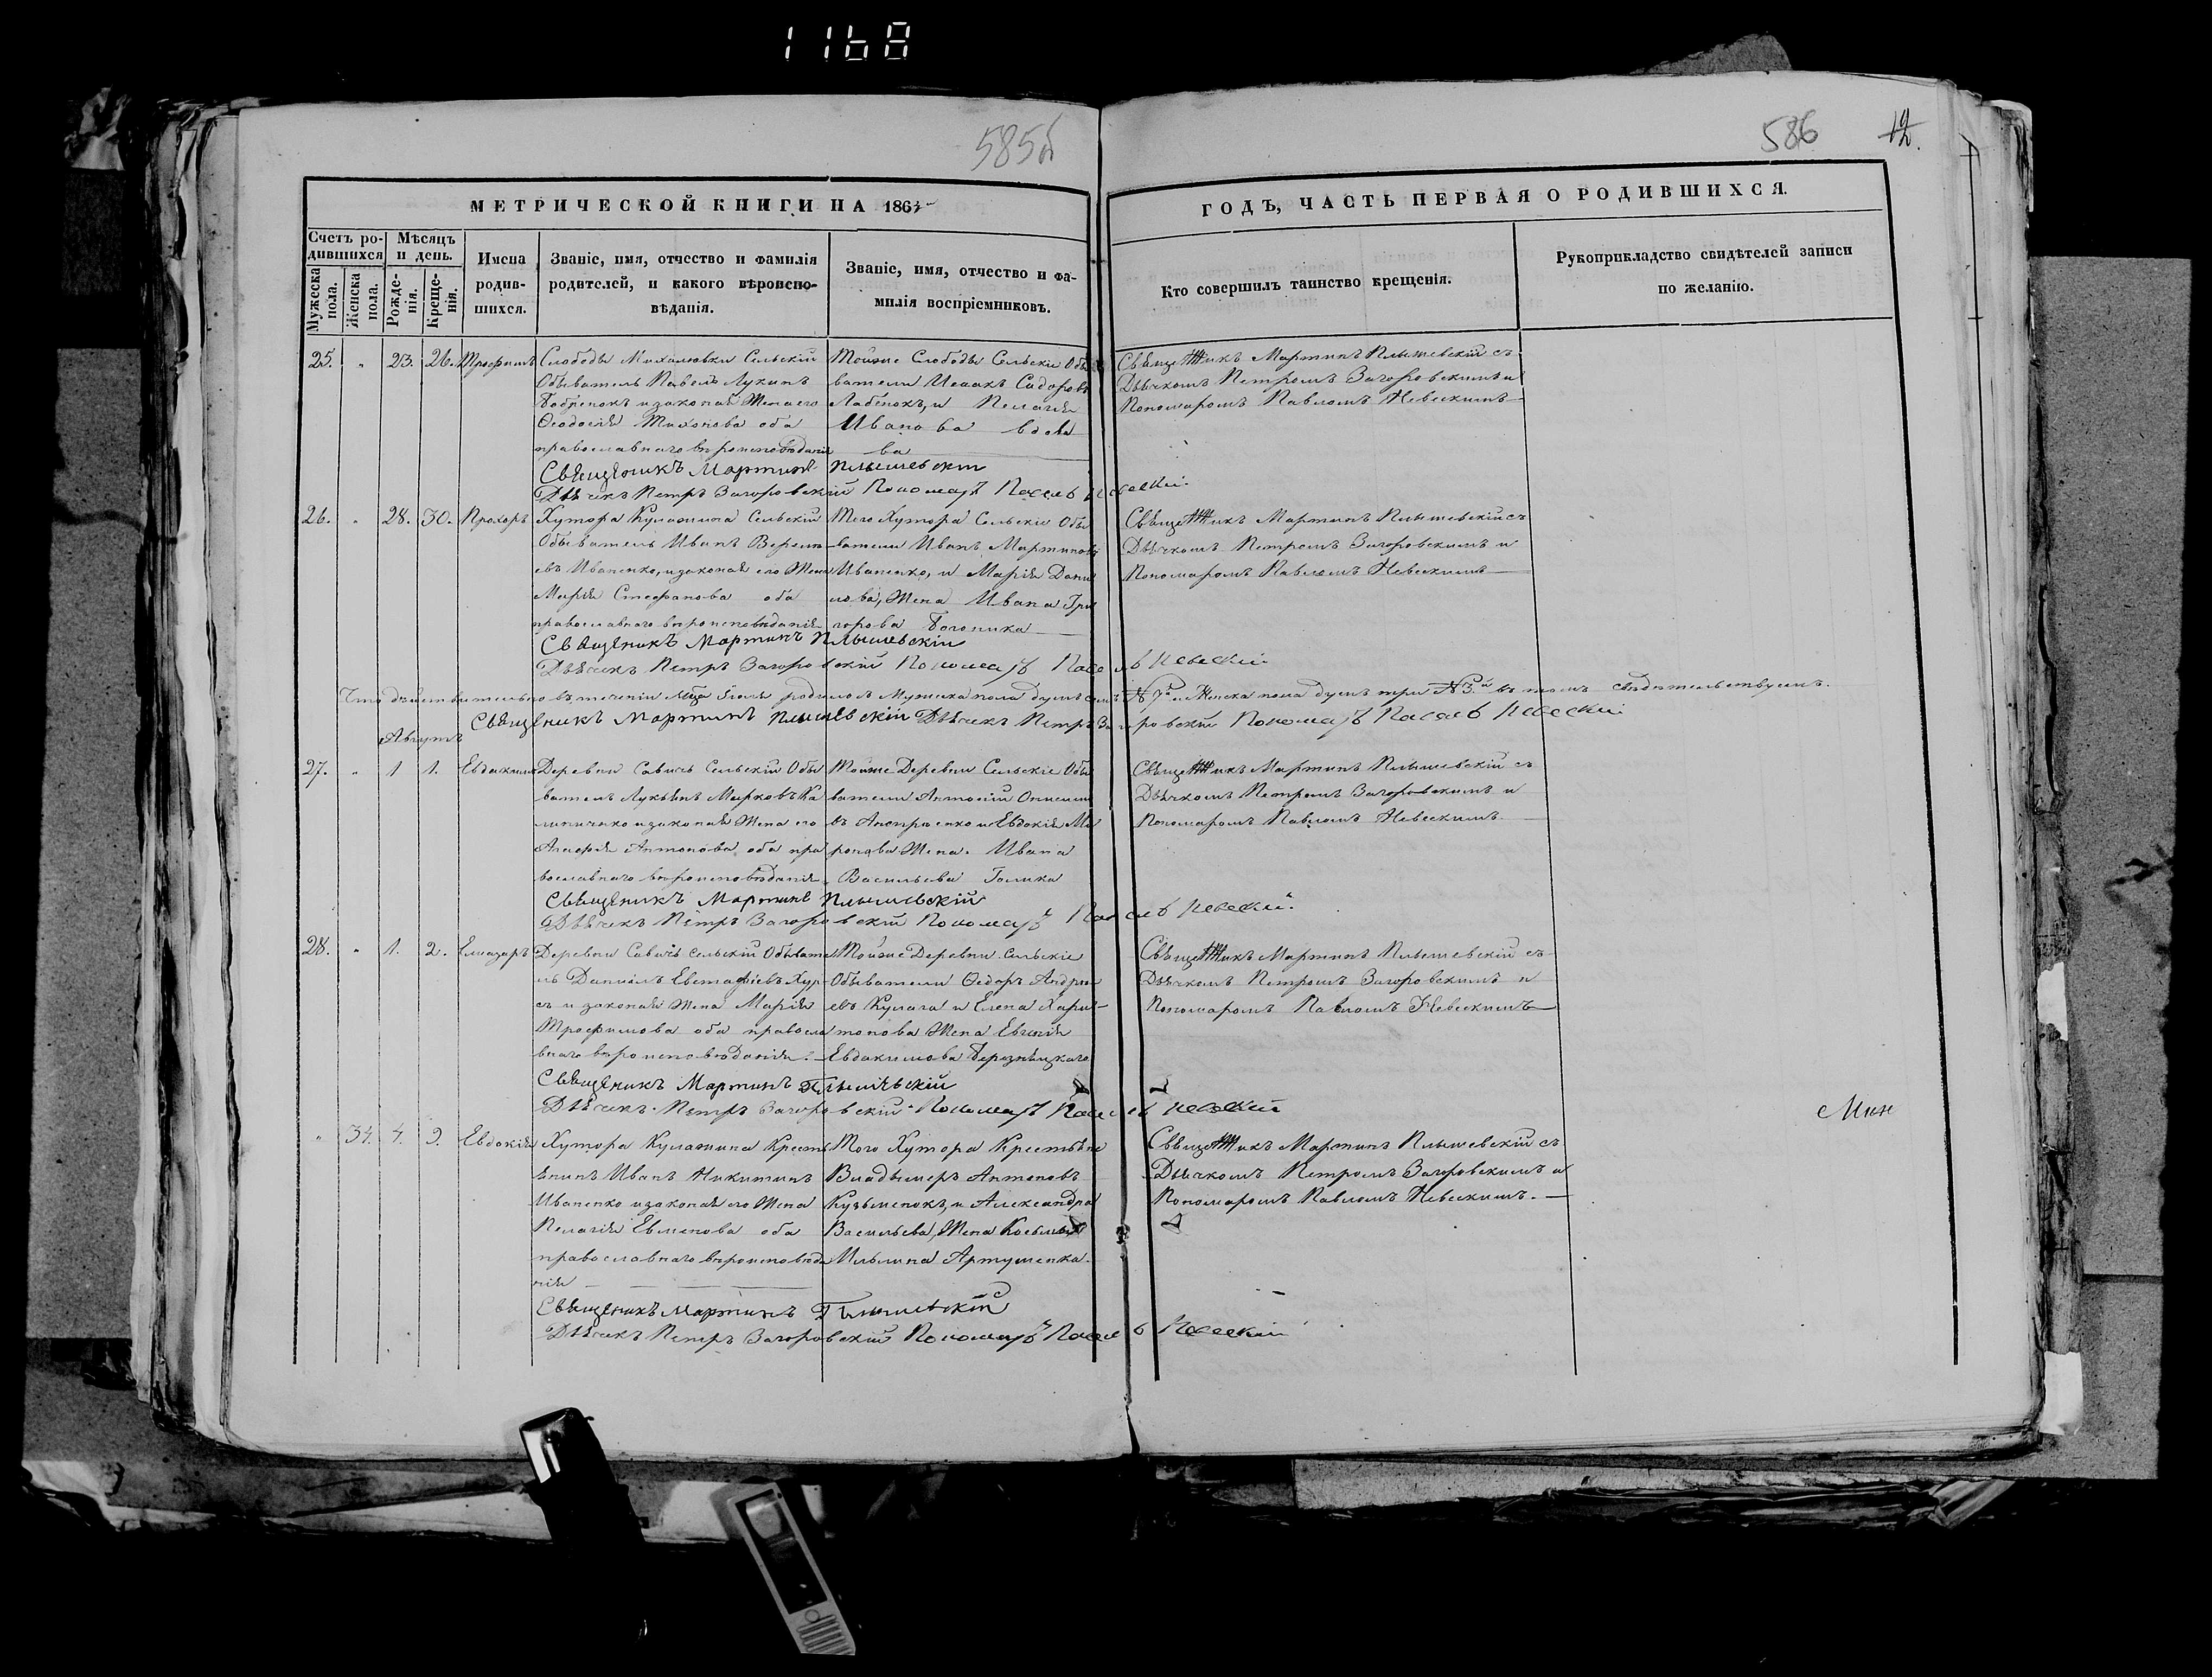 1168
585б
586
12.
МЕТРИЧЕСКОЙ КНИГИ НА 186
ГОДЪ, ЧАСТЬ ПЕРВАЯ О РОДИВШИХСЯ.
Счетъ ро-
дившихся
Мужеска
пола.
Женска
пола.
Мѣсяцъ
и день.
Рожде-
нія.
Креще-
нія.
Имена
родив-
шихся.
Званіе, имя, отчество и фамилія
родителей, и какого вѣроиспо-
вѣданія.
Званіе, имя, отчество и фа-
милія воспріемниковъ.
Кто совершилъ таинство крещенія.
Рукоприкладство свидѣтелей записи
по желанію.
25. " 23. 26. Трофимъ
Слободы Михалювки Сельскій
Обыватель Павелъ Лукинъ
и законая Жена его
Ѳеодосія Тихонова оба
православнаго вѣроисповѣданія
Тойже Слободы Сельскіе Обы
ватели Исаакъ Сидоровъ
и Пелагія
Иванова вдова
ва
Священникъ Мартинъ Плышевскій съ
Дьячкомъ Петромъ Загоровскимъ и
Пономаромъ Павломъ Невскимъ
Священикъ Мартинъ Плышевскій
Дьячекъ Петръ Загоровскій Пономарь Павелъ Невскій
26. " 28. 30. Прохоръ
Хутора Кулажина Сельскій
Обыватель Иванъ
евъ Иваненко, и законая его Жена
Марія Стефанова оба
православнаго вѣроисповѣданія
Того Хутора Сельскіе Обы
ватели Иванъ Мартиновъ
Иваненко, и Марія Дани
лова, Жена Ивана Гри
горова
Священникъ Мартинъ Плышевскій съ
Дьячкомъ Петромъ Загоровскимъ и
Пономаромъ Павломъ Невскимъ
Священикъ Мартинъ Плышевскій
Дьячекъ Петръ Загоровскій Пономарь Павелъ Невскій
Что дѣйствительно въ теченіи Мца Іюля родилось Мужеска пола душъ семь №7й и Женска пола душъ три №3й въ томъ свидѣтельствуемъ.
Священикъ Мартинъ Плышевскій Дьячекъ Петръ Загоровскій Пономарь Павелъ Невскій
Августъ
27. " 1 1. Евдакимъ
Деревни Савичъ Сельскій Обы
ватель Лукьянъ Марковъ Ка
линиченко и законая Жена его
Агафія Антонова оба пра
вославнаго вѣроисповѣданія
Тойже Деревни Сельскіе Обы
ватели Антоній
въ и Евдокія Ми
ронова Жена Ивана
Васильева Галика
Священникъ Мартинъ Плышевскій съ
Дьячкомъ Петромъ Загоровскимъ и
Пономаромъ Павломъ Невскимъ
Священикъ Мартинъ Плышевскій
Дьячекъ Петръ Загоровскій Пономарь Павелъ Невскій
28. " 1. 2. Елиазаръ
Деревни Савичъ Сельскій Обывате
ль Даніилъ Евстафіевъ
и законая Жена Марія
Трофимова оба правосла
внаго вѣроисповѣданія
Тойже Деревни Сельскіе
Обыватели Ѳедоръ Андре
евъ Кулага и Елена Хари-
тонова Жена Евгенія
Евдакимова
Священникъ Мартинъ Плышевскій съ
Дьячкомъ Петромъ Загоровскимъ и
Пономаромъ Павломъ Невскимъ
Священикъ Мартинъ Плышевскій
Дьячекъ Петръ Загоровскій Пономарь Павелъ Невскій
" 34. 4. 9. Евдокія
Хутора Кулажина Кресть
янинъ Иванъ Никитинъ
Иваненко и законая его Жена
Пелагія Евменова оба
православнаго вѣроисповѣда
нія
Того Хутора Крестьяне
Владымеръ Антоновъ
Кузьменокъ, и Александра
Васильева, Жена Косьмы
Ильина Артушенка
Священникъ Мартинъ Плышевскій съ
Дьячкомъ Петромъ Загоровскимъ и
Пономаромъ Павломъ Невскимъ
Священикъ Мартинъ Плышевскій
Дьячекъ Петръ Загоровскій Пономарь Павелъ Невскій